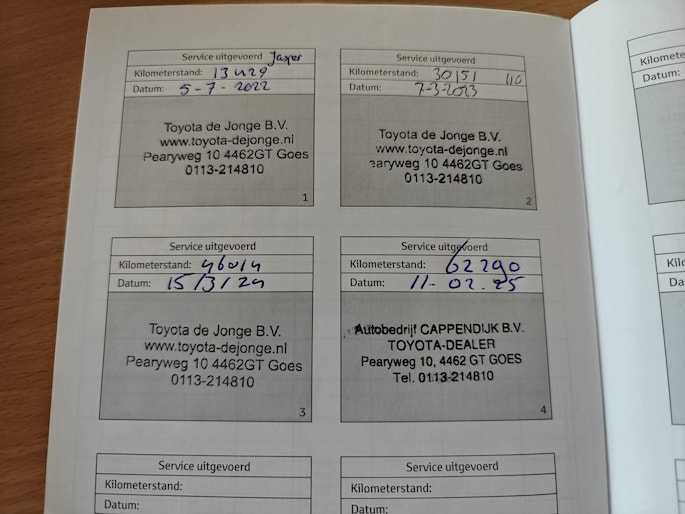 Service uitgevoerd Jasper
Kilometerstand: 13429
Datum: 5-7-2022
Toyota de Jonge B.V.
www.toyota-dejonge.nl
Pearyweg 10 4462GT Goes
0113-214810
1
Service uitgevoerd
Kilometerstand: 30151
Datum: 7-3-2023
Toyota de Jonge B.V.
www.toyota-dejonge.nl
earyweg 10 4462GT Goes
0113-214810
2
Service uitgevoerd
Kilometerstand: 46014
Datum: 15/3/24
Toyota de Jonge B.V.
www.toyota-dejonge.nl
Pearyweg 10 4462GT Goes
0113-214810
3
Service uitgevoerd
Kilometerstand: 62290
Datum: 11-02.25
Autobedrijf CAPPENDIJK B.V.
TOYOTA-DEALER
Pearyweg 10, 4462 GT GOES
Tel. 0113-214810
4
Service uitgevoerd
Kilometerstand:
Datum:
Service uitgevoerd
Kilometerstand:
Datum:
Kilomete
Datum:
Kilo
Dat